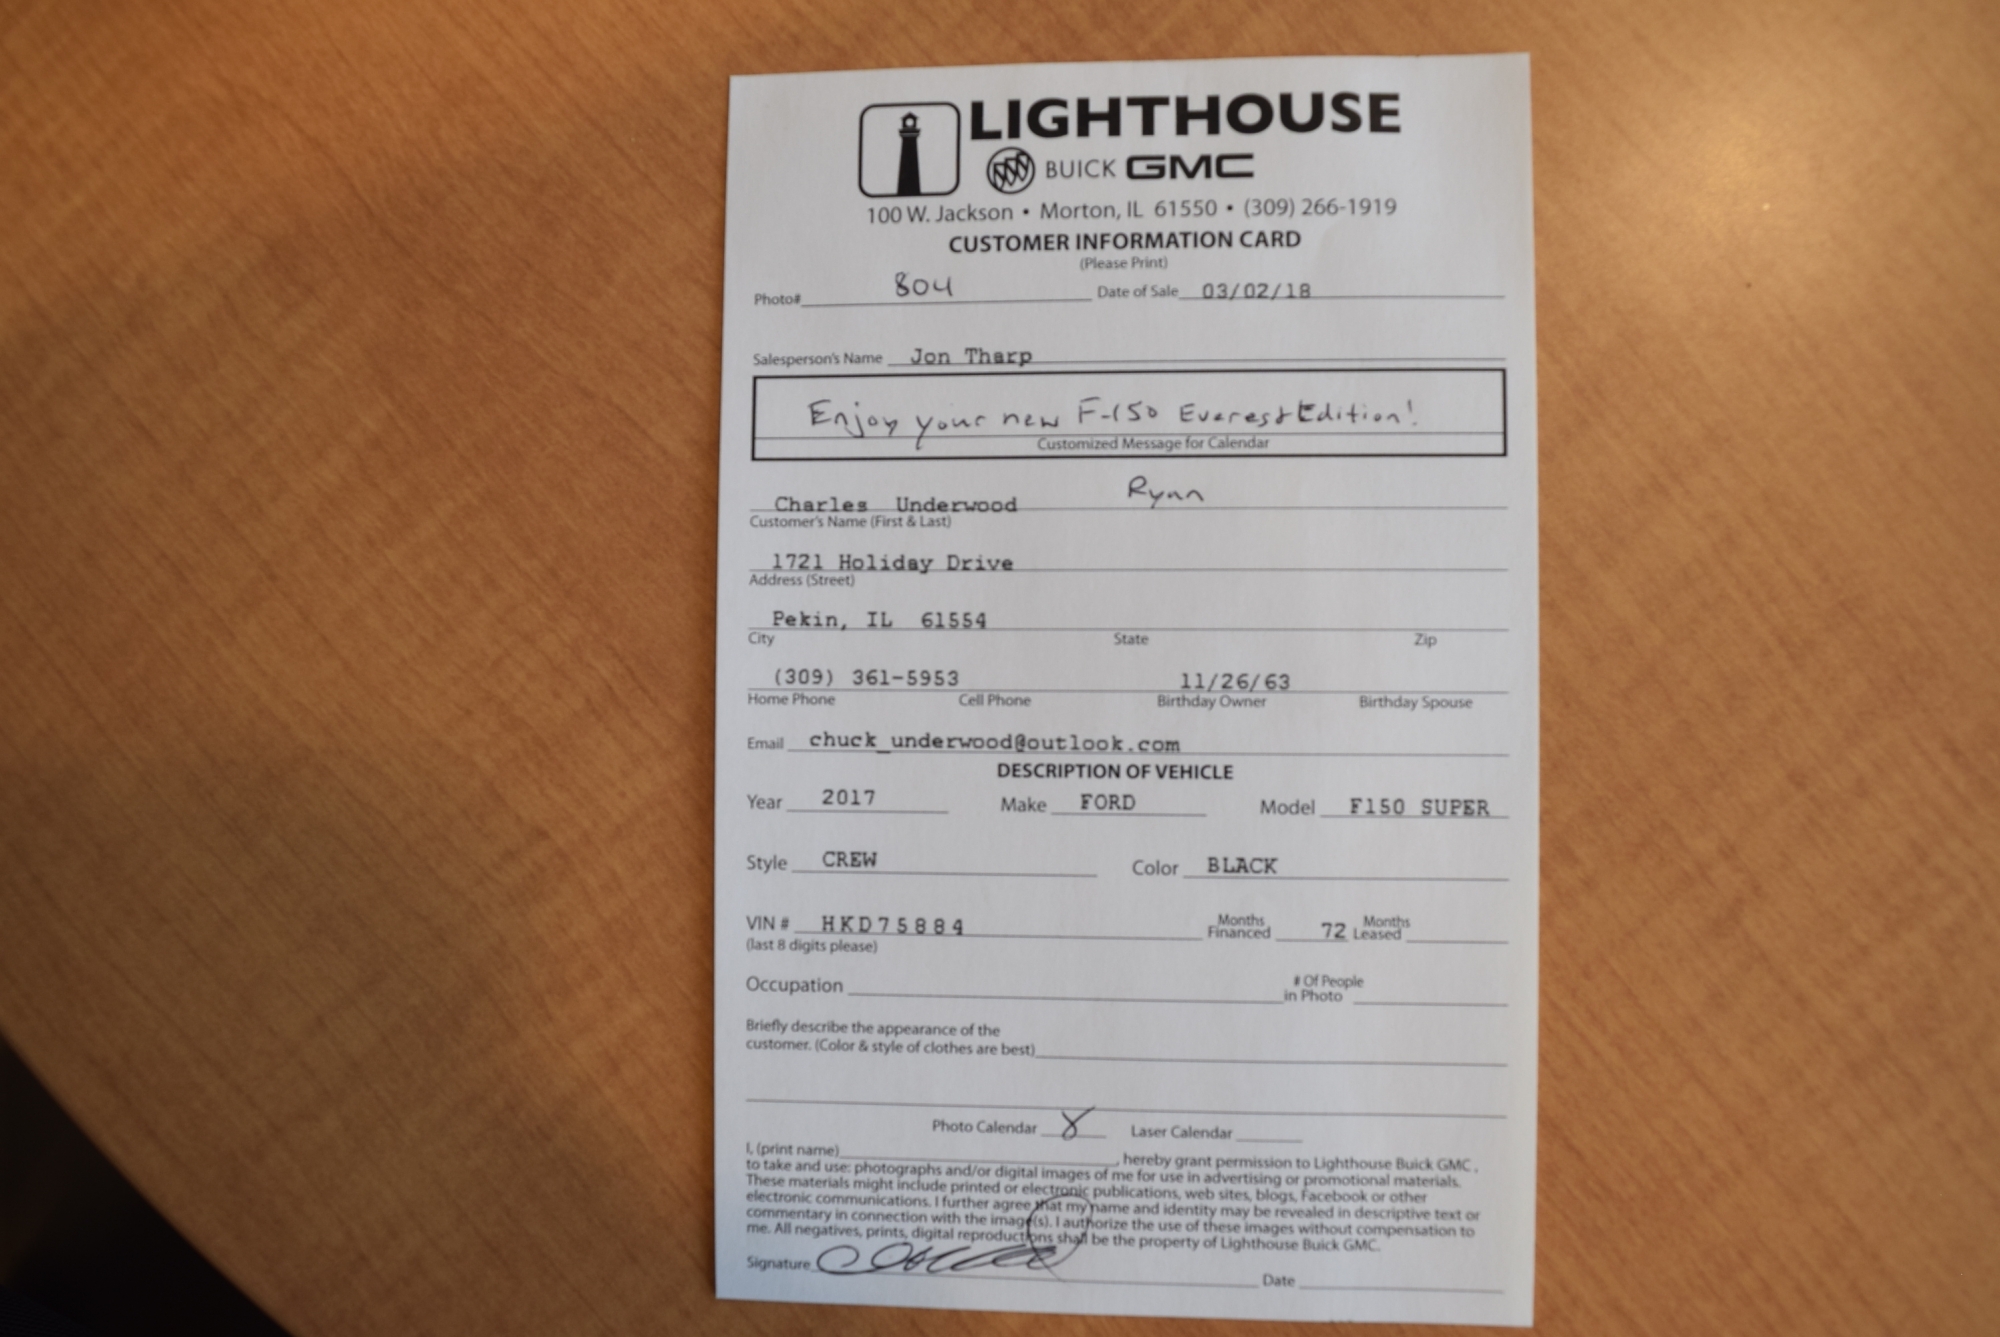 LIGHTHOUSE
BUICK GMC
100 W. Jackson • Morton, IL 61550 • (309) 266-1919
CUSTOMER INFORMATION CARD
(Please Print)
Photo# 804 Date of Sale 03/02/18
Salesperson's Name Jon Tharp
Enjoy your new F-150 Everest Edition!
Customized Message for Calendar
Charles Underwood Rynn
Customer's Name (First & Last)
1721 Holiday Drive
Address (Street)
Pekin, IL 61554
City State Zip
(309) 361-5953 11/26/63
Home Phone Cell Phone Birthday Owner Birthday Spouse
Email chuck_underwood@outlook.com
DESCRIPTION OF VEHICLE
Year 2017 Make FORD Model F150 SUPER
Style CREW Color BLACK
VIN # HKD75884 Months Financed 72 Months Leased
(last 8 digits please)
Occupation # Of People in Photo
Briefly describe the appearance of the
customer. (Color & style of clothes are best)
Photo Calendar X Laser Calendar
I, (print name) , hereby grant permission to Lighthouse Buick GMC ,
to take and use: photographs and/or digital images of me for use in advertising or promotional materials.
These materials might include printed or electronic publications, web sites, blogs, Facebook or other
electronic communications. I further agree that my name and identity may be revealed in descriptive text or
commentary in connection with the image(s). I authorize the use of these images without compensation to
me. All negatives, prints, digital reproductions shall be the property of Lighthouse Buick GMC.
Signature Date